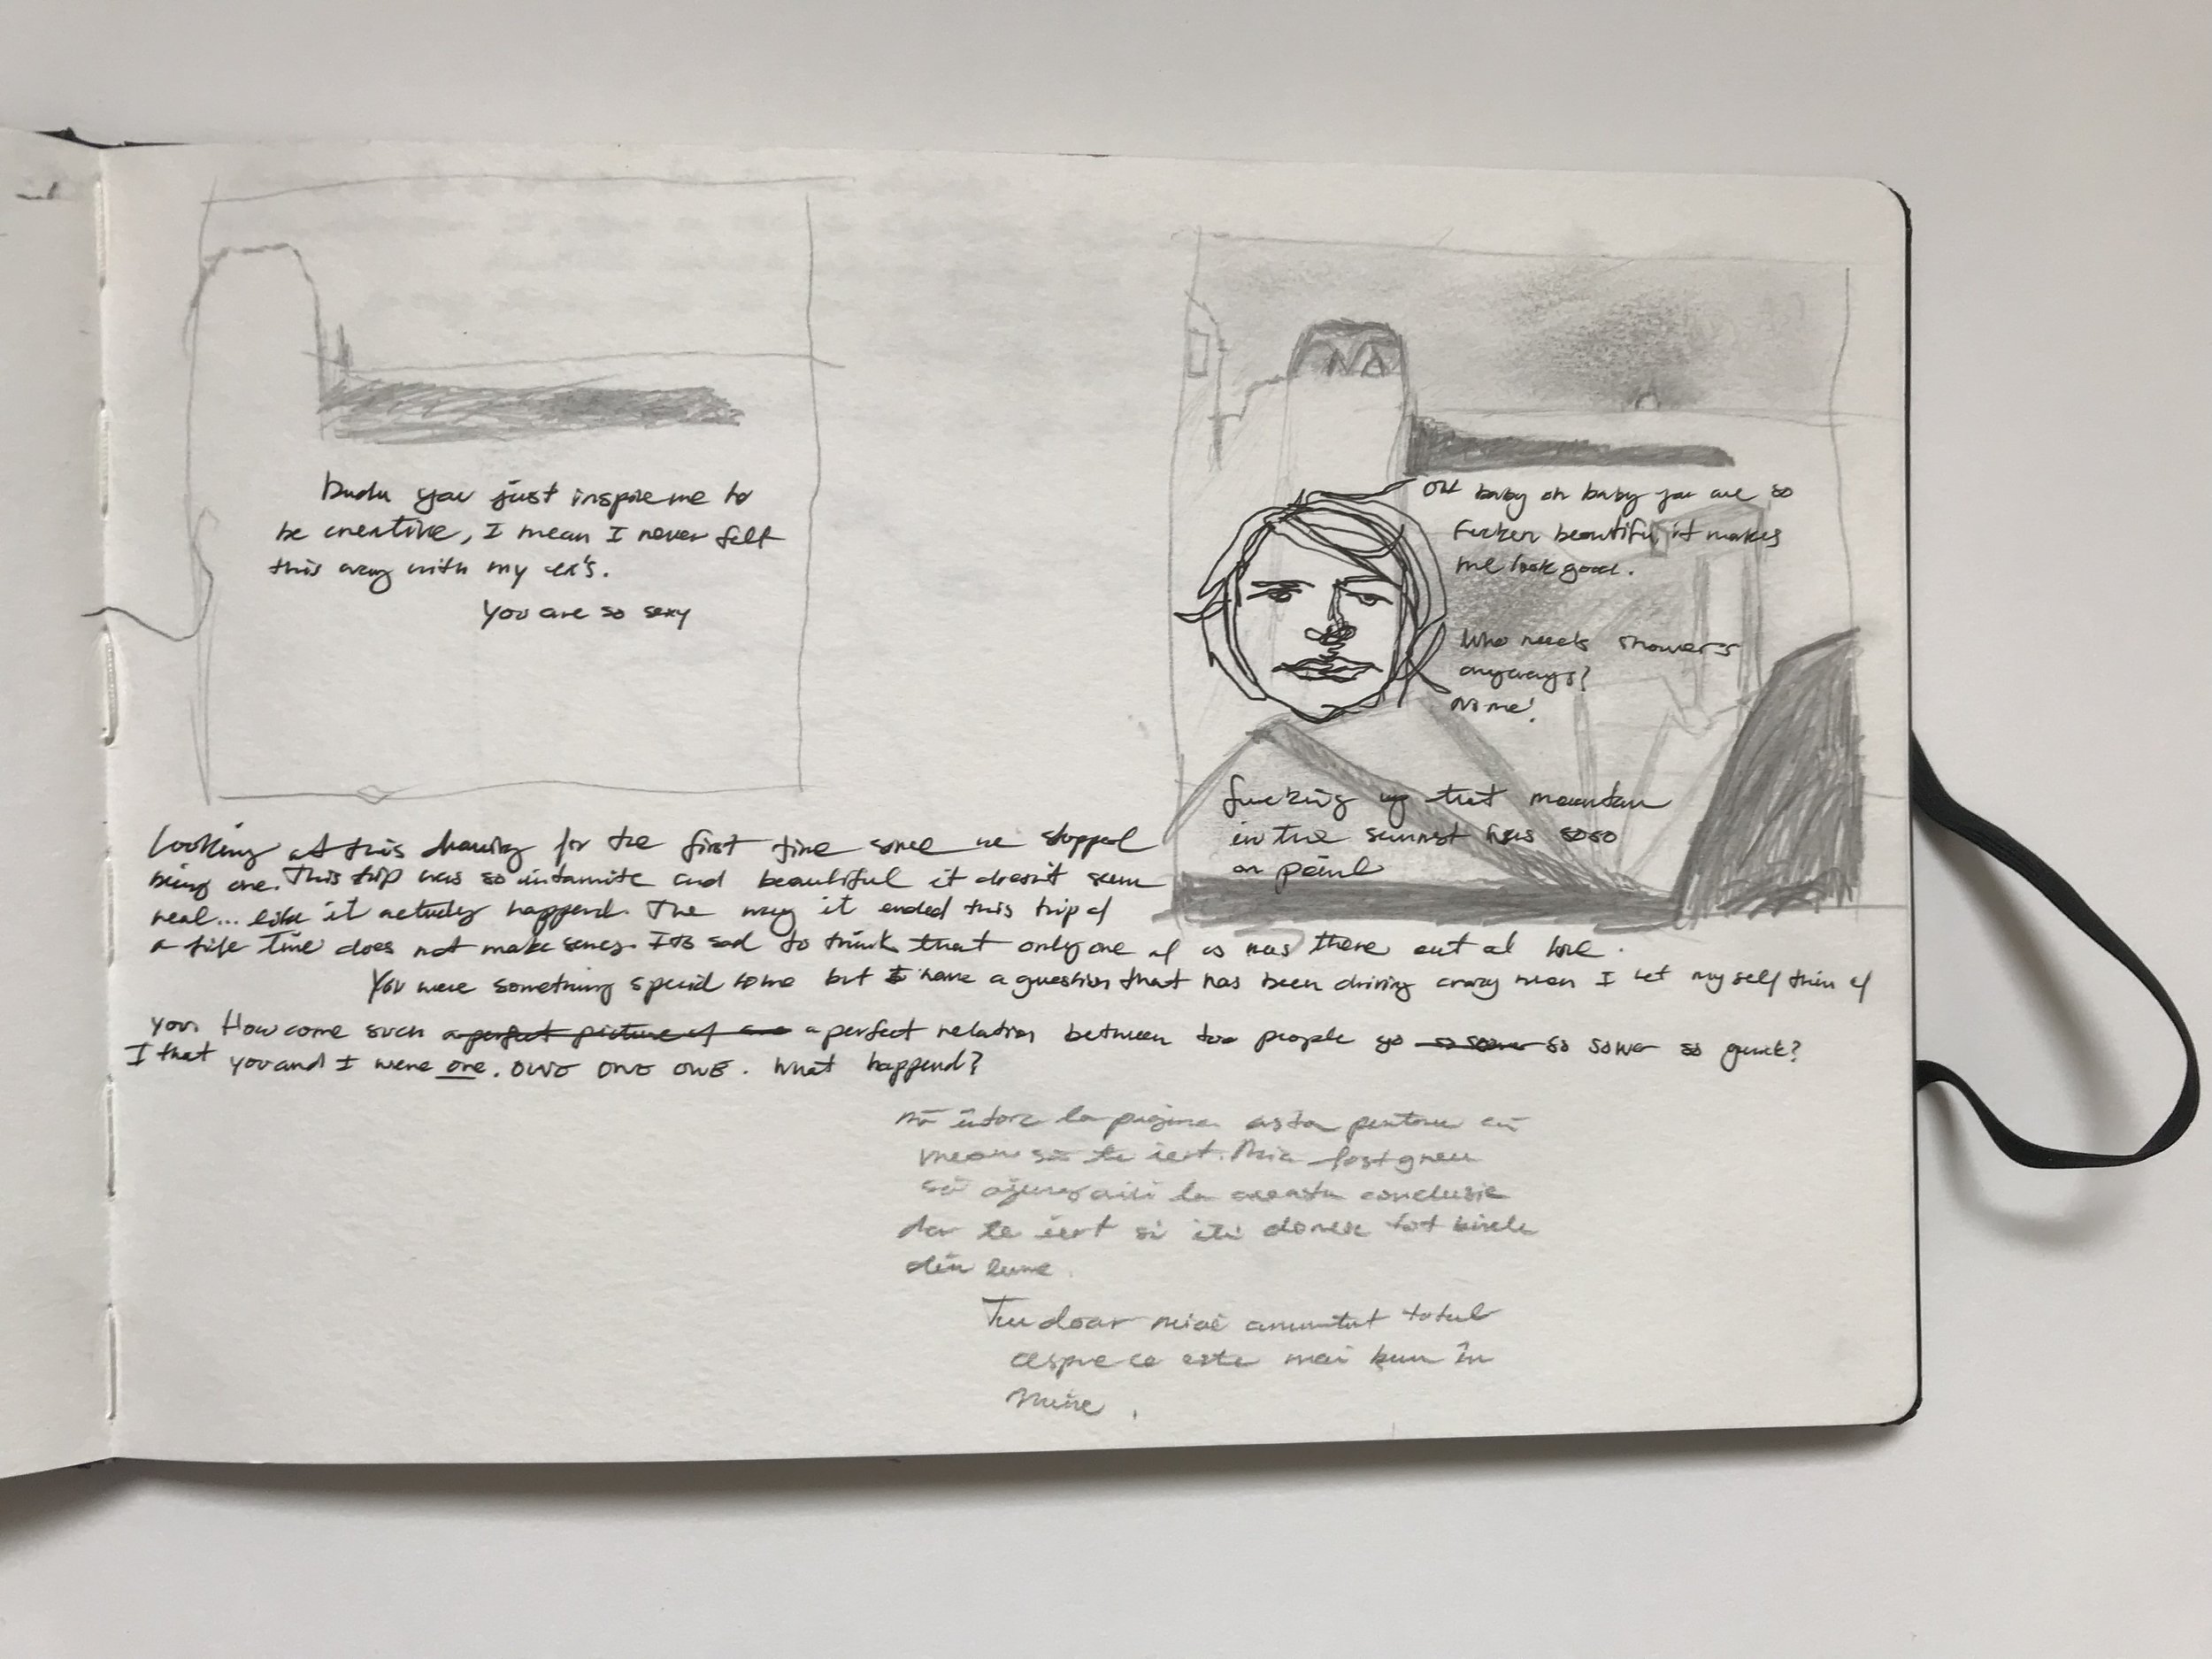 you just inspire me to
be creative, I mean I never felt
this way with my ex's.
You are so sexy
oh baby oh baby you are so
fucken beautiful, it makes
me look good.
Who needs showers
anyways?
No me!
fucking up that mountan
in the sunnst was soso
on point
Looking at this drawing for the first time since we stopped
being one. This trip was so intamite and beautiful it doesn't seem
real... like it actuly happend. The way it ended this trip of
a life time does not make sens. It's sad to think that only one of us was there out of love.
You were something special to me but I have a question that has been driving crazy when I let my self thin of
you. How come such a perfect picture of a perfect relation between too people go so sower so quick?
I that you and I were one. ONE ONE ONE. What happend?
mă intorc la pagina asta pentru că
vreau să te iert. Mia fost greu
să ajung aici la aceasta concluzie
dar te iert si iti doresc tot binele
din lume.
Tu doar miai amintit totul
despre ce este mai bun în
mine.